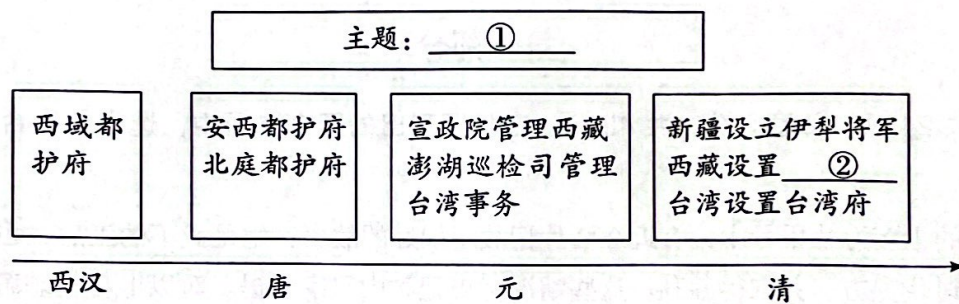 主题：①
西域都
护府
安西都护府
北庭都护府
宣政院管理西藏
澎湖巡检司管理
台湾事务
新疆设立伊犁将军
西藏设置②
台湾设置台湾府
西汉
唐
元
清